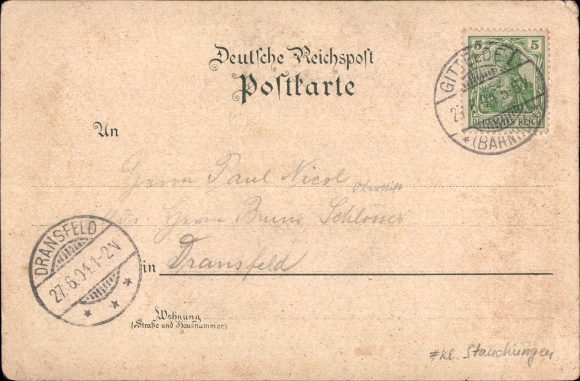 Deutsche Reichspost
Postkarte
5 5
DEUTSCHES REICH
GITTELDE
(BAHNH
An
Herrn Paul Nicol
Herrn Bruno Schlosser
in Dransfeld
DRANSFELD
27.6.04.1-2N
Wohnung
(Straße und Hausnummer)
#kl. Stauchungen